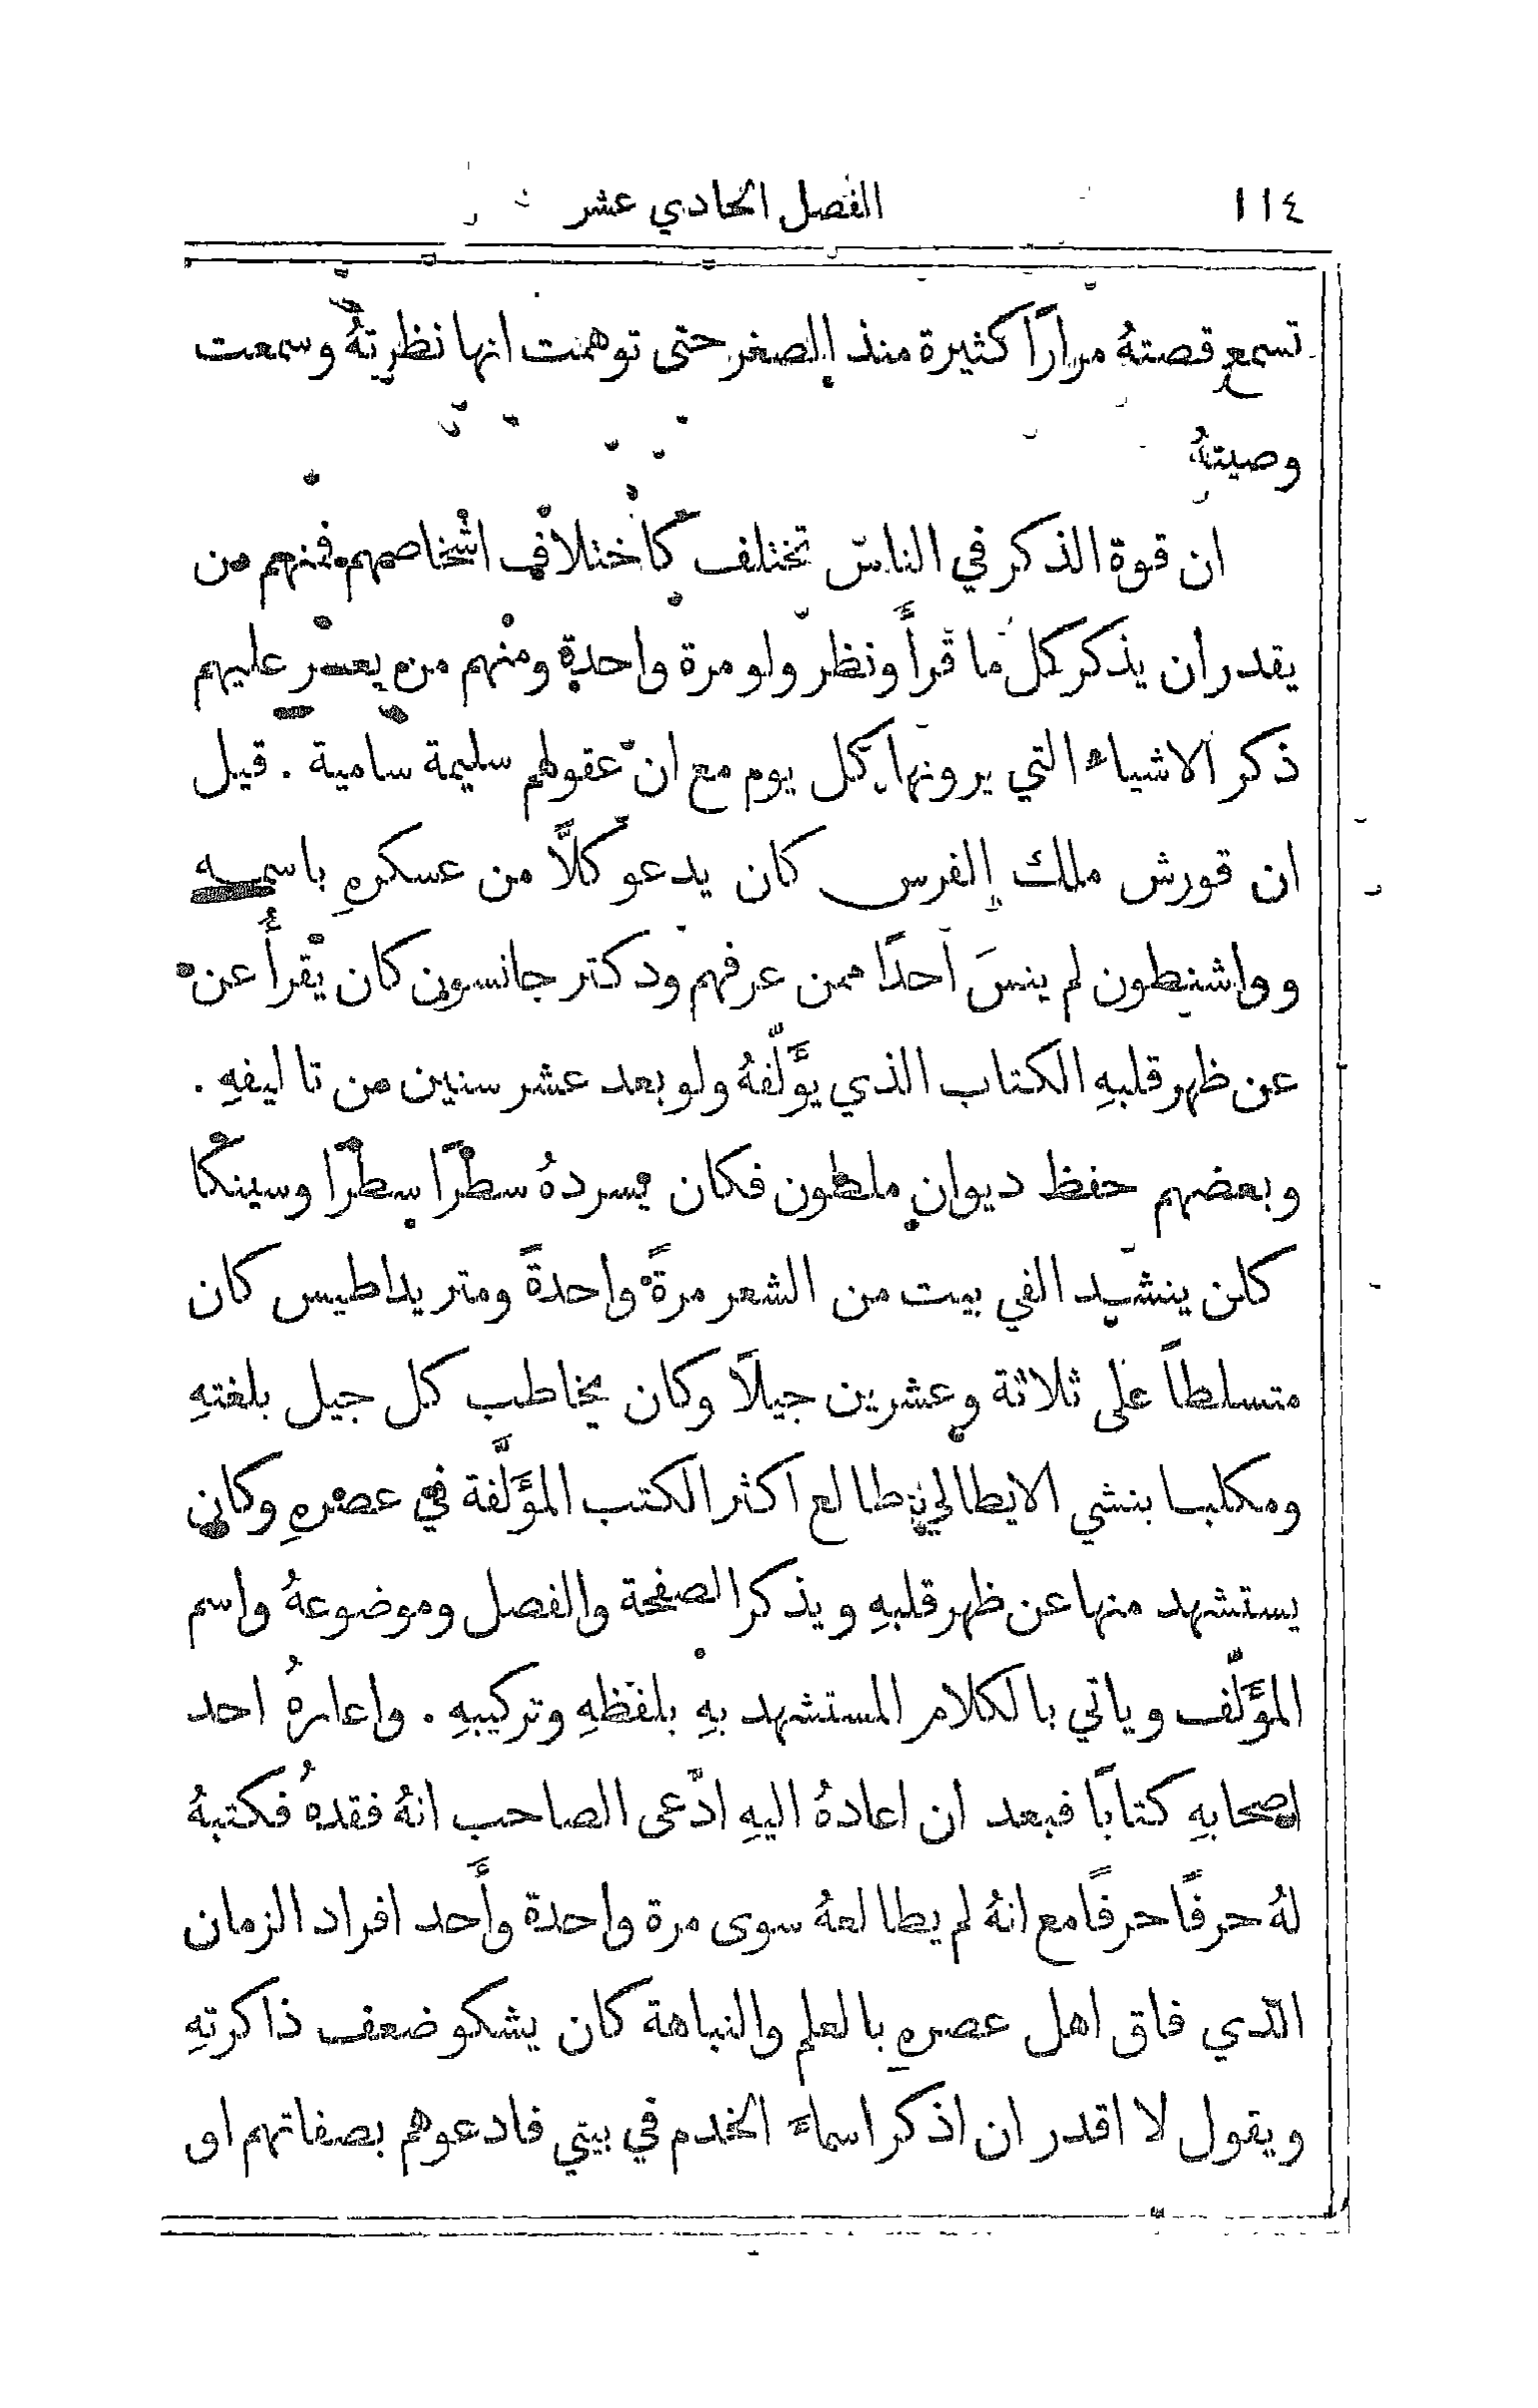 ١١٤ الفصل الحادي عشر
تسمع قصتهُ مرارًا كثيرة منذ الصغر حتى توهمت انها نظرتهُ وسمعت
وصيتهُ
ان قوة الذكر في الناس تختلف كاختلاف اشخاصهم فمنهم من
يقدر ان يذكر كل ما قرأ ونظر ولو مرة واحدة ومنهم من يعسر عليهم
ذكر الاشياء التي يرونها كل يوم مع ان عقولهم سليمة سامية . قيل
ان قورش ملك الفرس كان يدعو كلًّا من عسكرهِ باسمه
وواشنطون لم ينسَ احدًا ممن عرفهم ودكتر جانسون كان يقرأ عن
عن ظهر قلبهِ الكتاب الذي يؤَلّفهُ ولو بعد عشر سنين من تاليفهِ .
وبعضهم حفظ ديوان ملطون فكان يسردهُ سطرًا سطرًا وسينكا
كان ينشد الفي بيت من الشعر مرةً واحدةً ومتريداطيس كان
متسلطاً على ثلاثة وعشرين جيلًا وكان يخاطب كل جيل بلغتهِ
ومكلبا بنشي الايطالي طالع اكثر الكتب المؤَلَّفة في عصرهِ وكان
يستشهد منها عن ظهر قلبهِ ويذكر الصفحة والفصل وموضوعهُ واسم
المؤَلّف وياتي بالكلام المستشهد بهِ بلفظهِ وتركيبهِ . واعارهُ احد
اصحابهِ كتابًا فبعد ان اعادهُ اليهِ ادّعى الصاحب انهُ فقدهُ فكتبهُ
لهُ حرفًا حرفًا مع انهُ لم يطالعهُ سوى مرة واحدة وأَحد افراد الزمان
الذي فاق اهل عصرهِ بالعلم والنباهة كان يشكو ضعف ذاكرتهِ
ويقول لا اقدر ان اذكر اسماءَ الخدم في بيتي فادعوهم بصفاتهم او